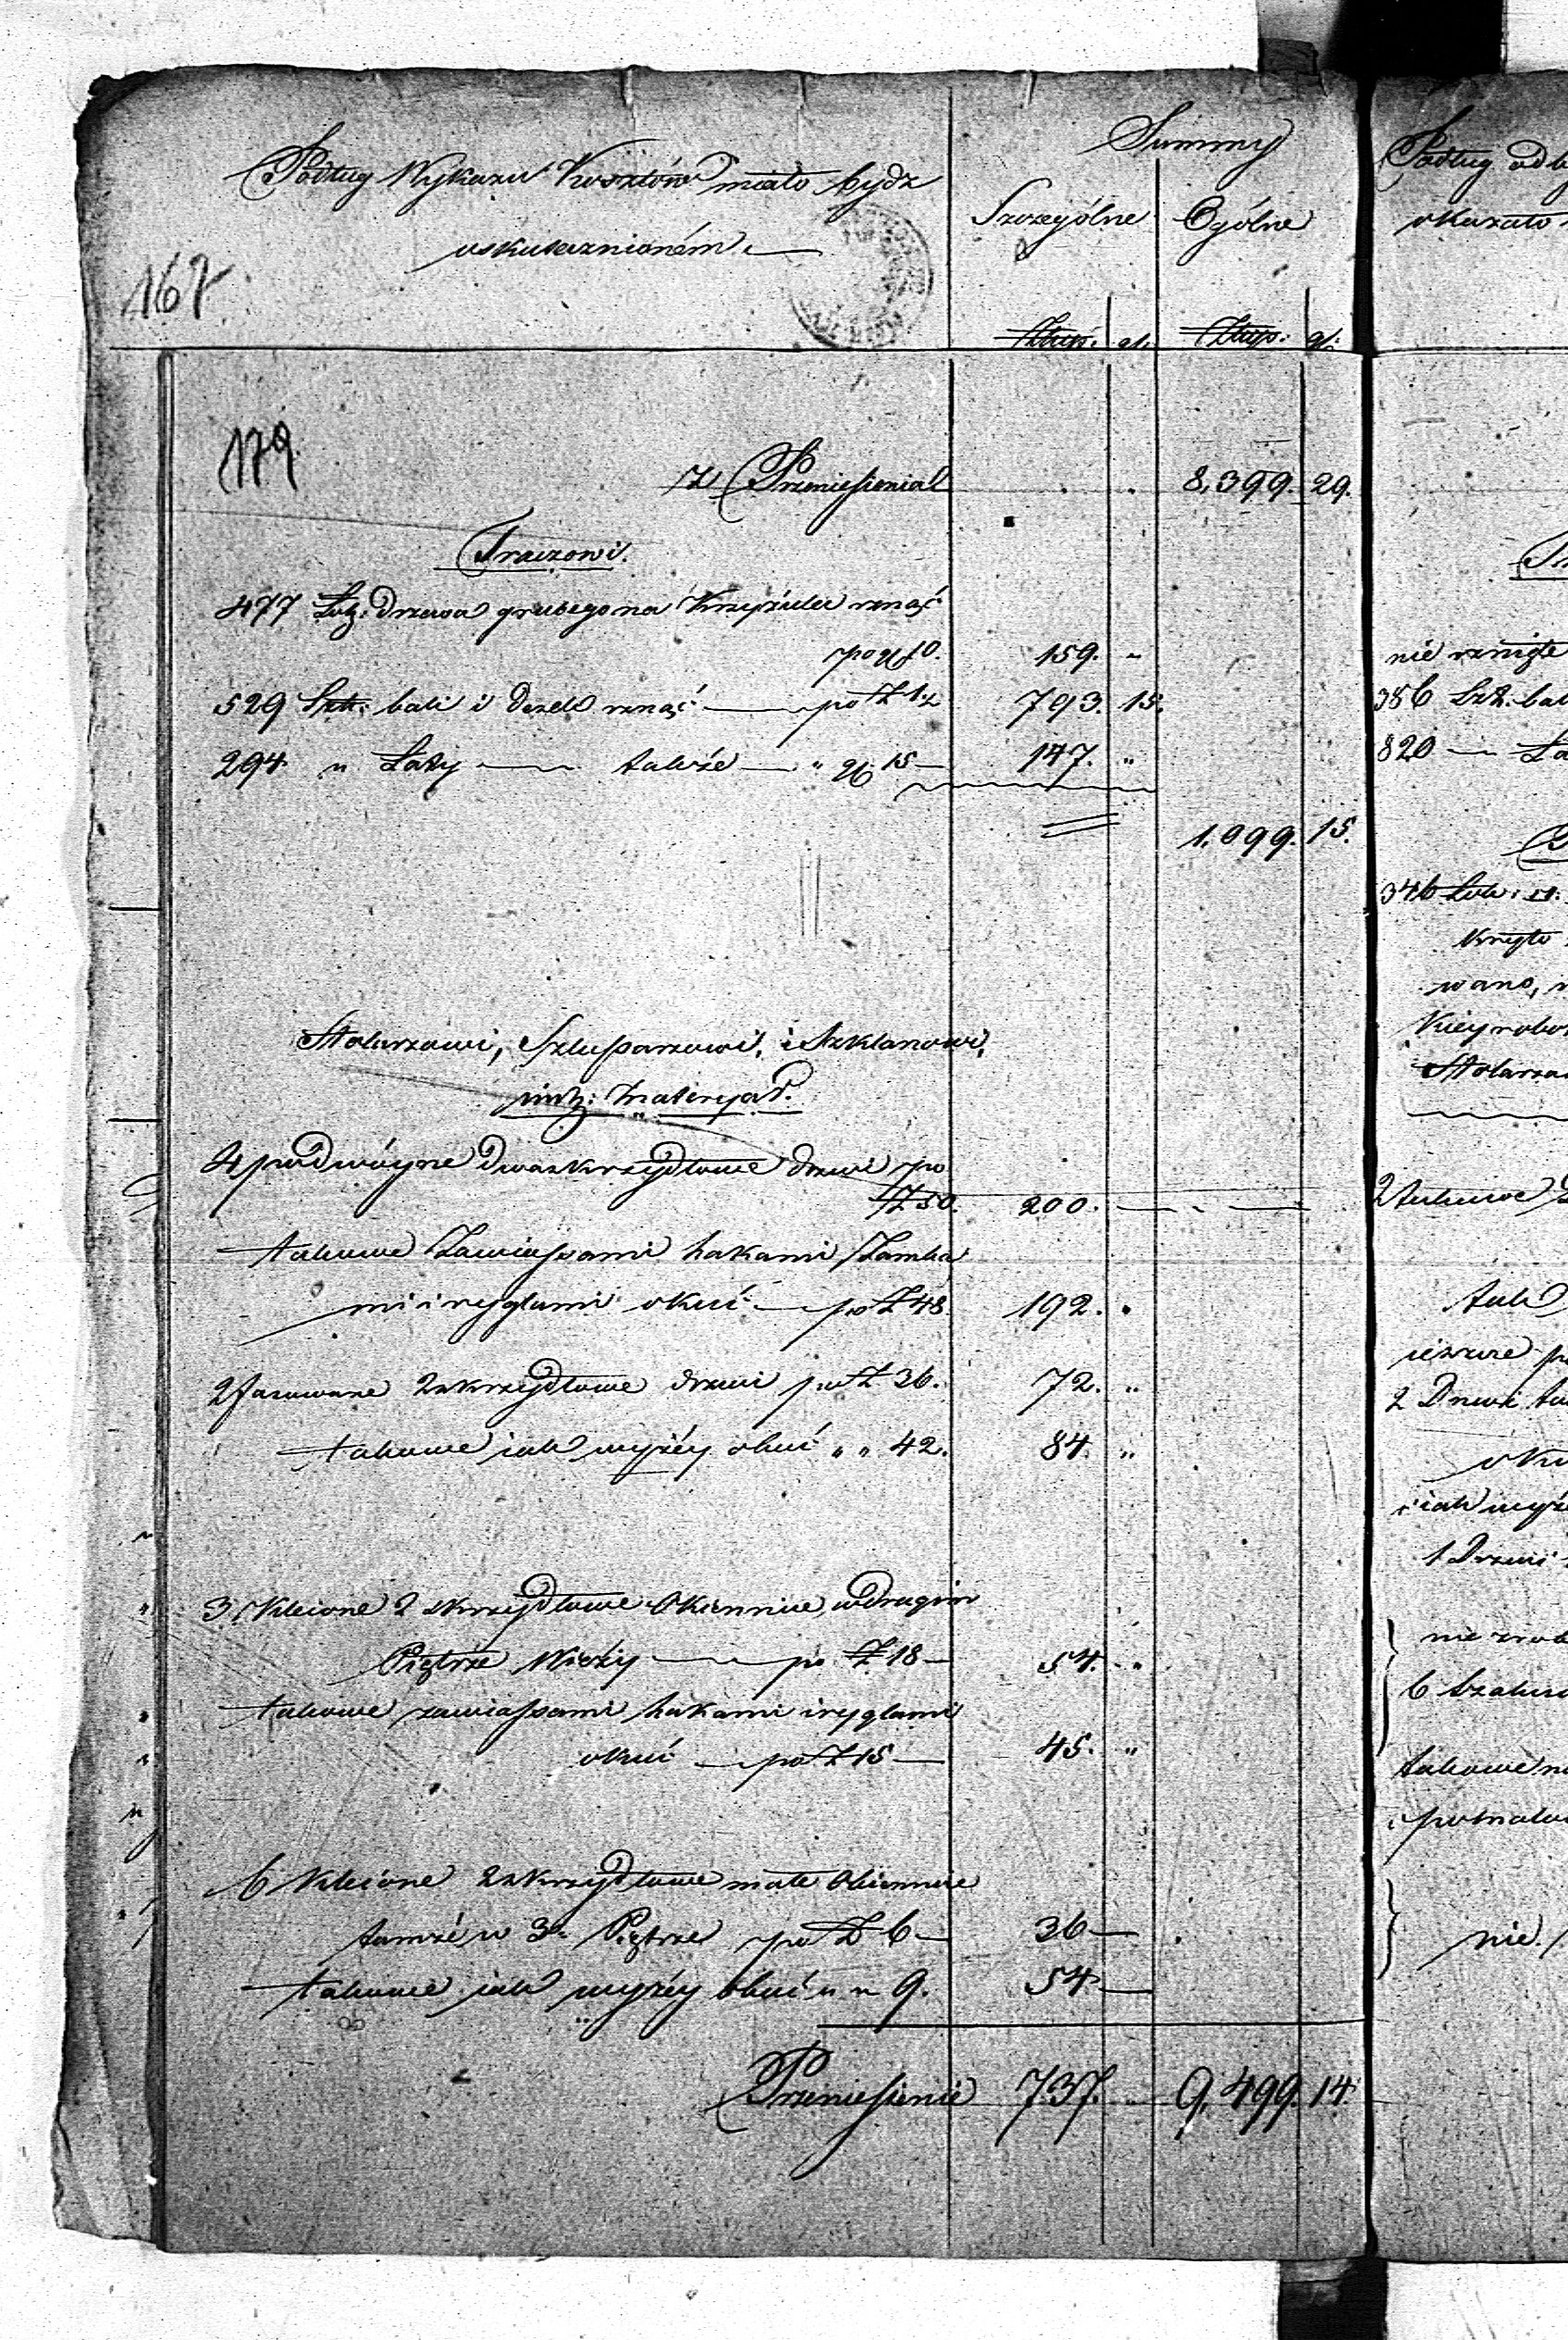 Podług Wykazu Kosztów miało bydz
uskutecznioném.
Summy
Szczególne Ogólne
Złup. gr. Złup. gr.
167
179
Z Przeniesienia 8,399. 29.
Traczowi.
477 Drzewa grubego na Krzyżulce rznąć
po gr 10. 159. "
529 Szt. bali i Desek rznąć po Z 1½ 793. 15.
294 " Łaty także " gr 15 147. "
1,099. 15.
Stolarzowi, Szlusarzowi, i Szklarzowi,
Materyał.
4 podwóyne Dwaskrzydłowe drzwi po
Z 50. 200.
takowe Zawiassami hakami Zamka
mi i ryglami okuć po Z 48. 192.
2 fasowane 2skrzydłowe drzwi po Z 36. 72. "
takowe iak wyżéy okuć " " 42. 84. "
3 Kleione 2 skrzydłowe Okiennice w Drugim
Piętrze Wieży po Z 18 54. "
takowe zawiassami hakami i ryglami
okuć po Z 15 45. "
6 Kleione 2skrzydłowe małe Okiennice
tamże w 3m Piętrze po Z 6 36
takowe iak wyżéy okuć " " 9. 54
Przeniesienie 737. " 9,499. 14.
Podług
okazało
nie rznięte
356 Szt. bal
820
346
wano,
Stolarza
2
2 Drzwi
iak wyż
1 Drzwi
nie
6
takowe
nie.